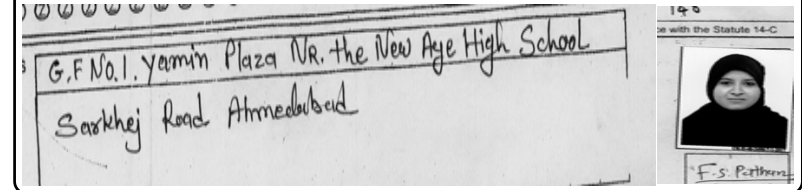 G.F No.1. Yamin Plaza NR. the New Age High School
Sarkhej Road Ahmedabad
140
ce with the Statute 14-C
F.S. Pathan